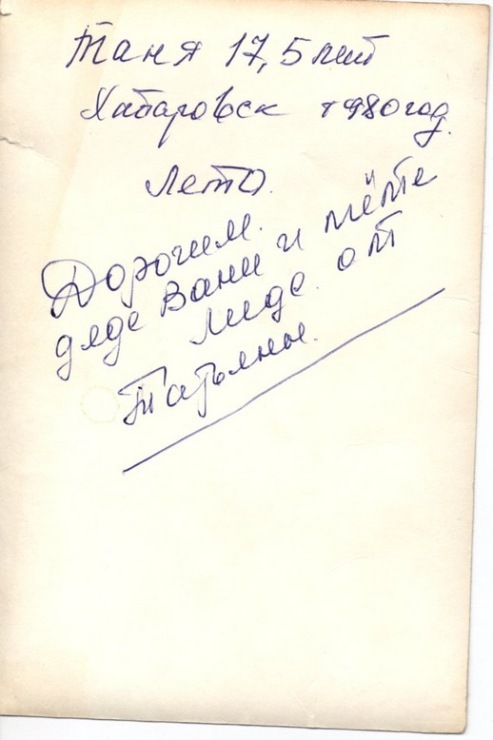 Таня 17,5 лет
Хабаровск 1980 год.
Лето.
Дорогим.
дяде Вани и тёте
Лиде от
Татьяны.